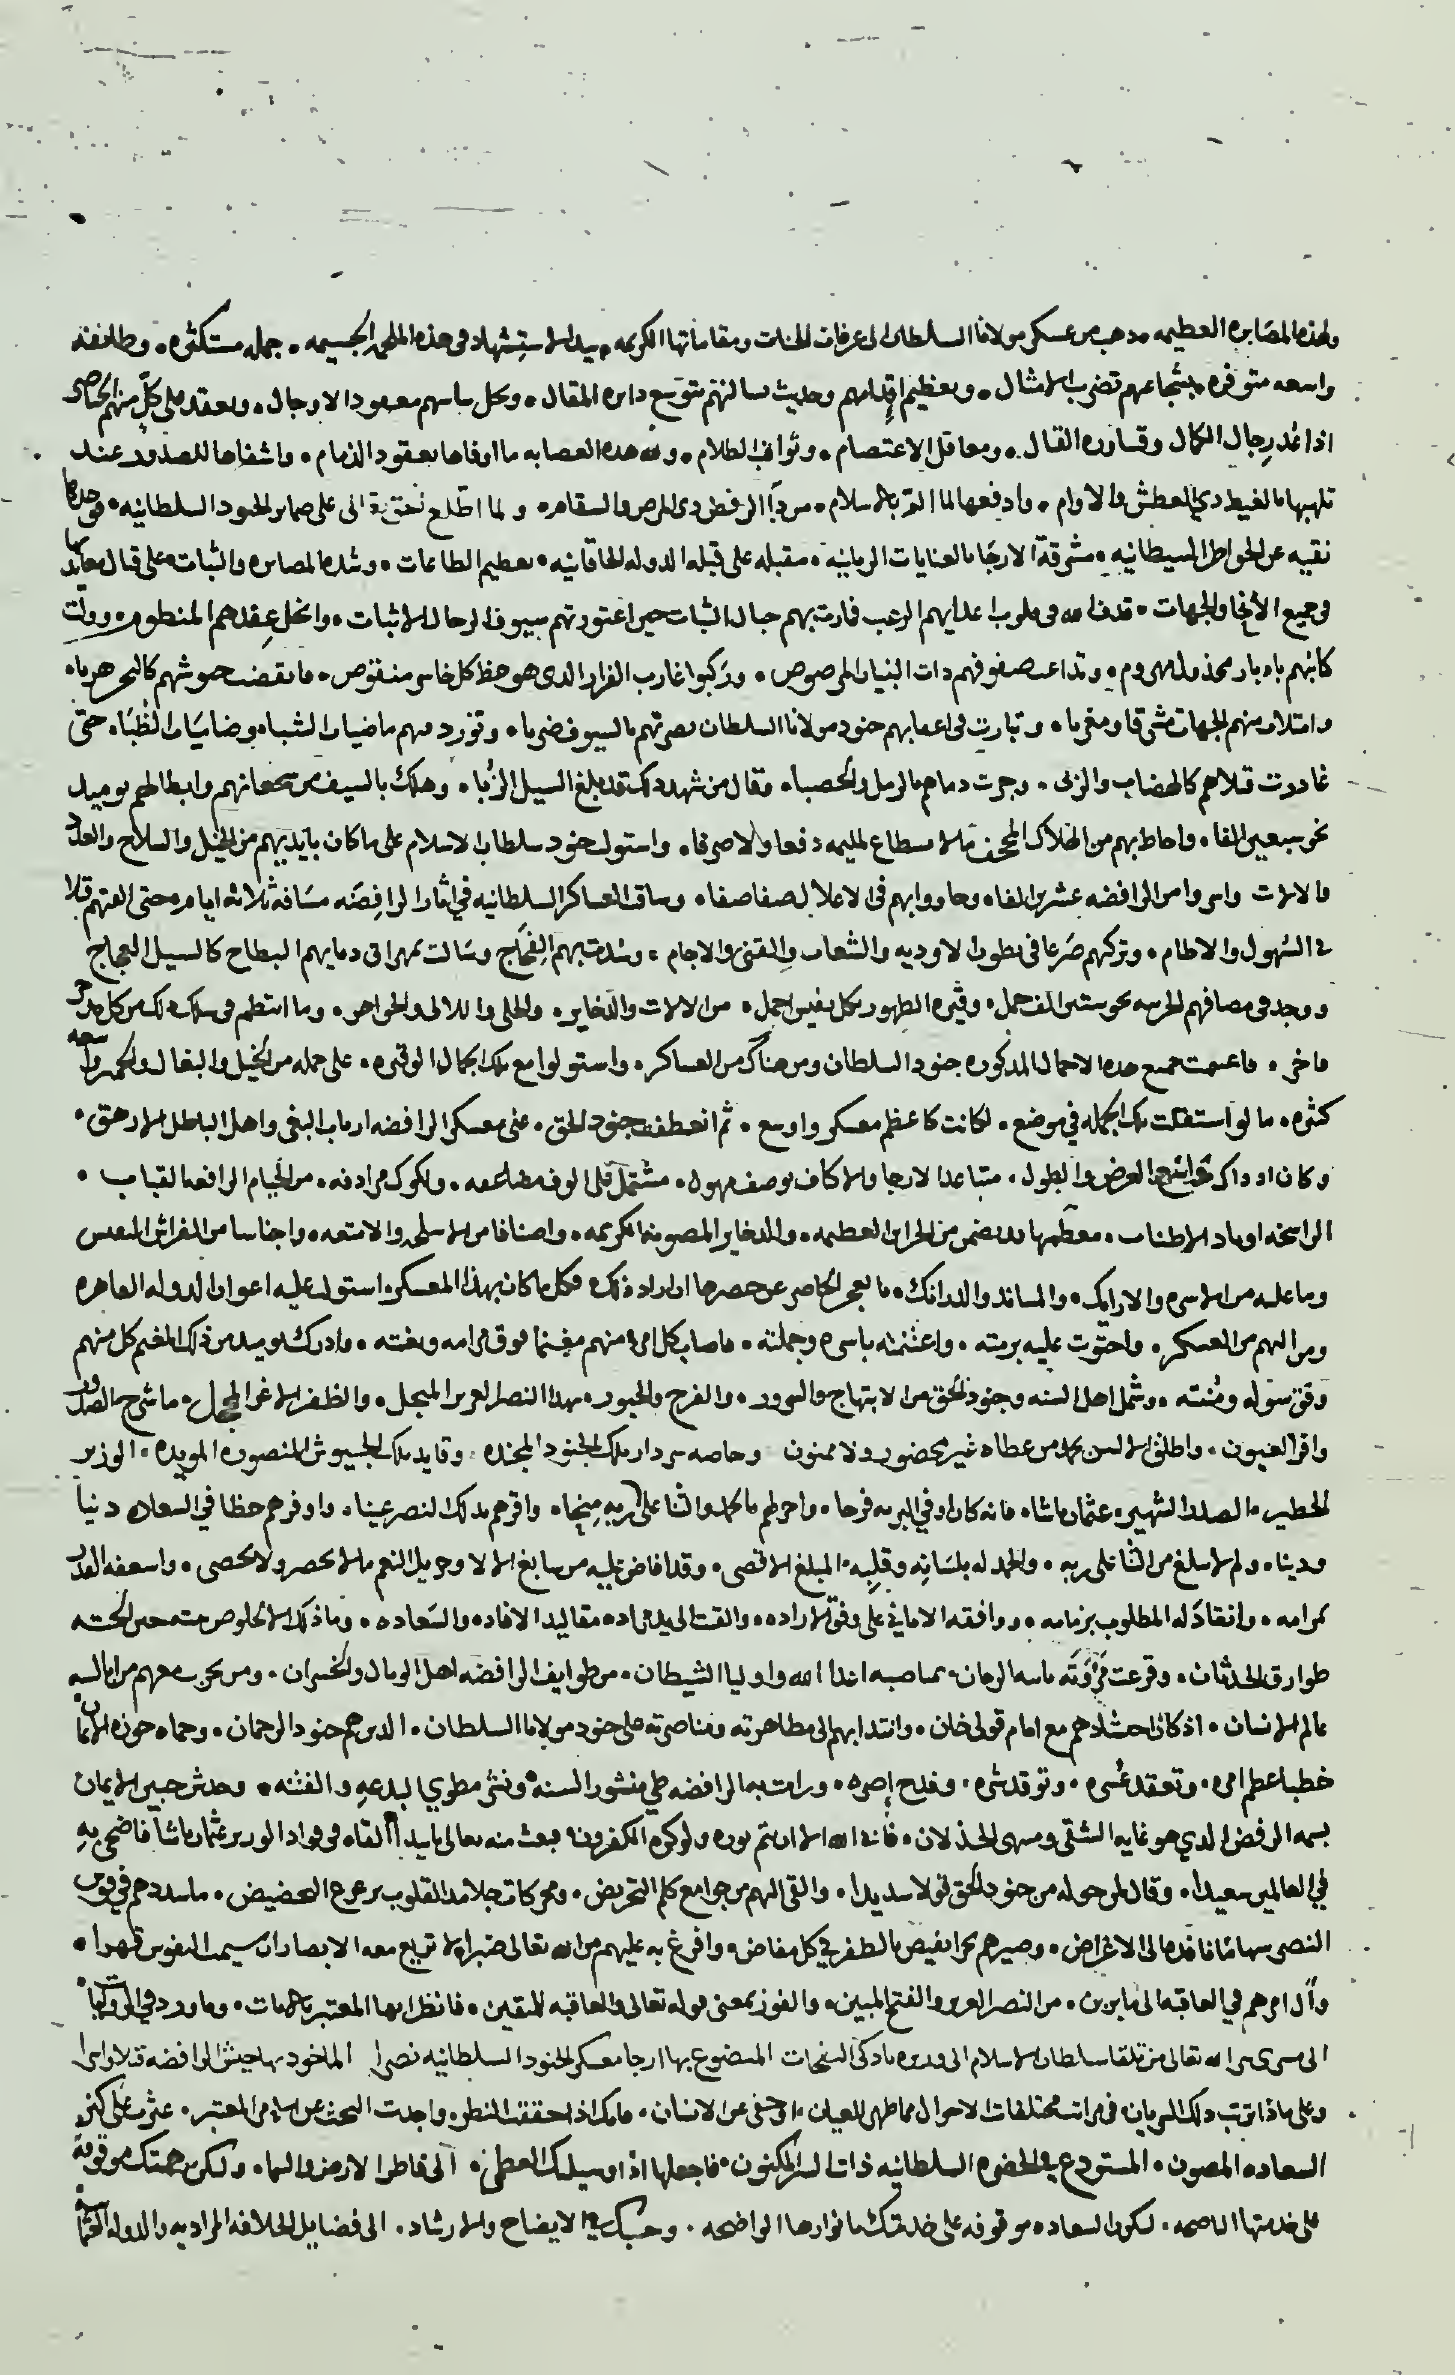 ولهذه المصابره العظيمه ذهب من عسكر مولانا السلطان الى غرفات الجنات ومقاماتها الكريمه بيد الاستشهاد في هذه الملحمه الجسيمه جمله مستكثره وطائفه
واسعه متوفره بشجاعتهم تضرب الامثال وبعظيم اقدامهم وحديث بسالتهم تتوسع دايره المقال وبحل باسهم معقود الاوجال ويعقد على كل منهم الخناصر
اذا عُد رجال الكمال وقساوره القتال ومعاقل الاعتصام وثواقب الظلام ولله هذه العصابه ما اوفاها بعقود الذمام واشفاها للصدور عند
تلهبها بالغيظ ذي العطش والاوام وادفعها لما الم بالاسلام من دا الرفض ذي المرض والسقام ولما اطلع الله تعالى على ضماير الجنود السلطانيه فوجدها
نقيه عن الخواطر الشيطانيه مشرقة الارجا بالعنايات الربانيه مقبله على قبله الدوله الخاقانيه بعظيم الطاعات وشده المصابره والثبات على قتال معانديها
في جميع الانحا والجهات قذف الله في قلوب اعدايهم الرعب فمادت بهم جبال الثبات حين اعتورتهم سيوف الرجال الاثبات وانحل عقدهم المنظوم وولت
كتائبهم بادبار مخذول مهزوم وتداعت صفوفهم ذات البنيان المرصوص وركبوا غارب الفرار الذي هو حظ كل خاسر منقوص فانقضت جيوشهم كالبحر هربا
وامتلات منهم الجهات مشرقا ومغربا وتبارت في اعقابهم جنود مولانا السلطان بصرتهم بالسيوف ضربا وتورد منهم ماضيات الشبا وضاميات الظبا حتى
غادرت قتلاهم كالهضاب والربى وجرت دماهم بالرمل والحصبا وقال من شهد ذلك قد بلغ السيل الزبا وهلك بالسيف من شجعانهم وابطالهم يوميذ
نحو سبعين الفا واحاط بهم من الهلاك المجحف ما لا يستطاع اليه دفعا ولا صرفا واستولت جنود سلطان الاسلام على ما كان بايديهم من الخيل والسلاح والعدد
والالات واسروا من الرافضه عشرين الفا وجاوا بهم في الاغلال صفا صفا وساقت العساكر السلطانيه في اثار الرافضه مسافة ثلاثه ايام حتى افنتهم قتلا
في السهول والاطام وتركهم صرعا في بطون الاوديه والشعاب والقنن والاجام وسدت بهم الفجاج وسالت بمهراق دمايهم البطاح كالسيل الثجاج
ووجد في مصافهم الحربيه نحو ستين الف حمل وقيره الظهور بكل نفيس احمل من الالات والذخاير والحلي واللالى والجواهر وما انتظم في سلك ذلك من كل مدخر
فاخر فاغتنمت جميع هذه الاحمال المذكوره جنود السلطان ومن هناك من العساكر واستولوا مع تلك الجمال الوقره على جمله من الخيل والبغال والحمير واسعه
كثره ما لو استقلت تلك الجمله في موضع لكانت كاعظم معسكر واوسع ثم انعطفت جنود الحق على معسكر الرافضه ارباب البغي واهل الباطل الازهق
وكان اذ ذاك متسع العرض والطول متباعد الارجا والاكناف بوصف مهول مشتمل على الوف مضاعفه ولكوك مرادفه من الخيام الرافعه القباب
الراسخه اوتاد الاطناب معظمها قد تضمن من الخزاين العظيمه والذخاير المصونه الكريمه واصنافا من الاسلحه والامتعه واجناسا من الفراش النفيس
وما عليه من الاسره والارايك والمساند والدرانك ما يعجز الحاصر عن حصرها ان اراد ذلك فكل ما كان بهذا المعسكر استولت عليه اعوان الدوله القاهره
ومن اليهم من العسكر واحتوت عليه برمته واغتنمته باسره وجملته فاصاب كل امرء منهم مغنما فوق مرامه وبغيته وادرك يوميذ من ذلك المغنم كل منهم
وفق سوله ومنيته وشمل اهل السنه وجنود الحق من الابتهاج والسرور والفرح والحبور بهذا النصر العزيز المبجل والظفر الاغر المحجل ما شرح الصدور
واقر العيون واطلق الالسن بحمد من عطاه غير محصور ولا ممنون وخاصه سردار تلك الجنود المجنده وقايد تلك الجيوش المنصوره المويده الوزير
الخطير الصدر الشهير عثمان باشا فانه كان اوفى البريه فرحا واحراهم بالحمد والثنا على ربه منحا واقرهم بذلك النصر عينا واوفرهم حظا في السعاده دنيا
ودينا ولم لا يبلغ من الثنا على ربه والحمد له بلسانه وقلبه المبلغ الاقصى وقد افاض عليه من سابغ الالا وجزيل النعم ما لا يحصر ولا يحصى واسعفه القدر
بمرامه وانقاد له المطلوب بزمامه ووافقه الاماني على وفق الاراده والقت الى يد مراده مقاليد الافاده والسعاده وما ذلك الا لخلوص نيته حين الحته
طوارق الحدثان وقرعت مروته باسه الزمان بمناصبه اعدا الله واوليا الشيطان من طوايف الرافضه اهل الوبال والخسران ومن تحزب معهم من ابالسه
عالم الانسان اذ كان احتشادهم مع امام قولي خان وانتدابهم الى مظاهرته ومناصرته على جنود مولانا السلطان الذين هم جنود الرحمان وحماه حوزه الايمان
خطبا عظم امره وتعقد عسره وتوقد شره وفدح اصره ورامت به الرافضه طي منشور السنه ونشر مطوي البدعه والفتنه وحدش جبين الايمان
بسمه الرفض الذي هو غايه الشقى ومنتهى الخذلان فابى الله الا ان يتم نوره ولو كره الكفرون فبعث منه تعالى تاييدا القاه في فواد الوزير عثمان باشا فاضحى به
في العالمين سعيدا وقال لمن حوله من جنود الحق قولا سديدا والقى اليهم من جوامع كلم التحريض ومحركات جلامد القلوب برعرع الحضيض ما سددهم في قوس
النصر سهاما نافذه الى الاغراض وصيرهم بحرا يفيض بالظفر في كل مفاض وافرغ به عليهم من الله تعالى صبرا لا تزيغ معه الابصار ان سيمت النفوس قهرا
وآل امرهم في العاقبه الى ما يرون من النصر العزيز والفتح المبين والفوز بمعنى قوله تعالى والعاقبه للمتقين فانظر ايها المعتبر بالايات وما ورد في
الى سرى سر الله تعالى من تلقا سلطان الاسلام الى وزيره باذكى النفحات المتضوع بها ارجا معسكر الجنود السلطانيه نصرا الماخوذ بها جيش الرافضه قتلا واسرا
وعلى ماذا ترتب ذلك السريان في مراتب مختلفات الاحوال مما ظهر للعيان او خفي عن الانسان فانك اذا حققت النظر واجدت البحث عن اسرار المعتبر عثرت على كنز
السعاده المصون المستودع في الحضره السلطانيه ذات السر المكنون فاجعلها اذا وسيلتك العظمى الى فاطر الارض والسما ولتكن همتك موقوفه
على خدمتها الناصحه لتكون السعاده موقوفه على خدمتك بانوارها الواضحه وحسبك في الايضاح والارشاد الى فضايل الخلافه المراديه والدوله العثمانيه